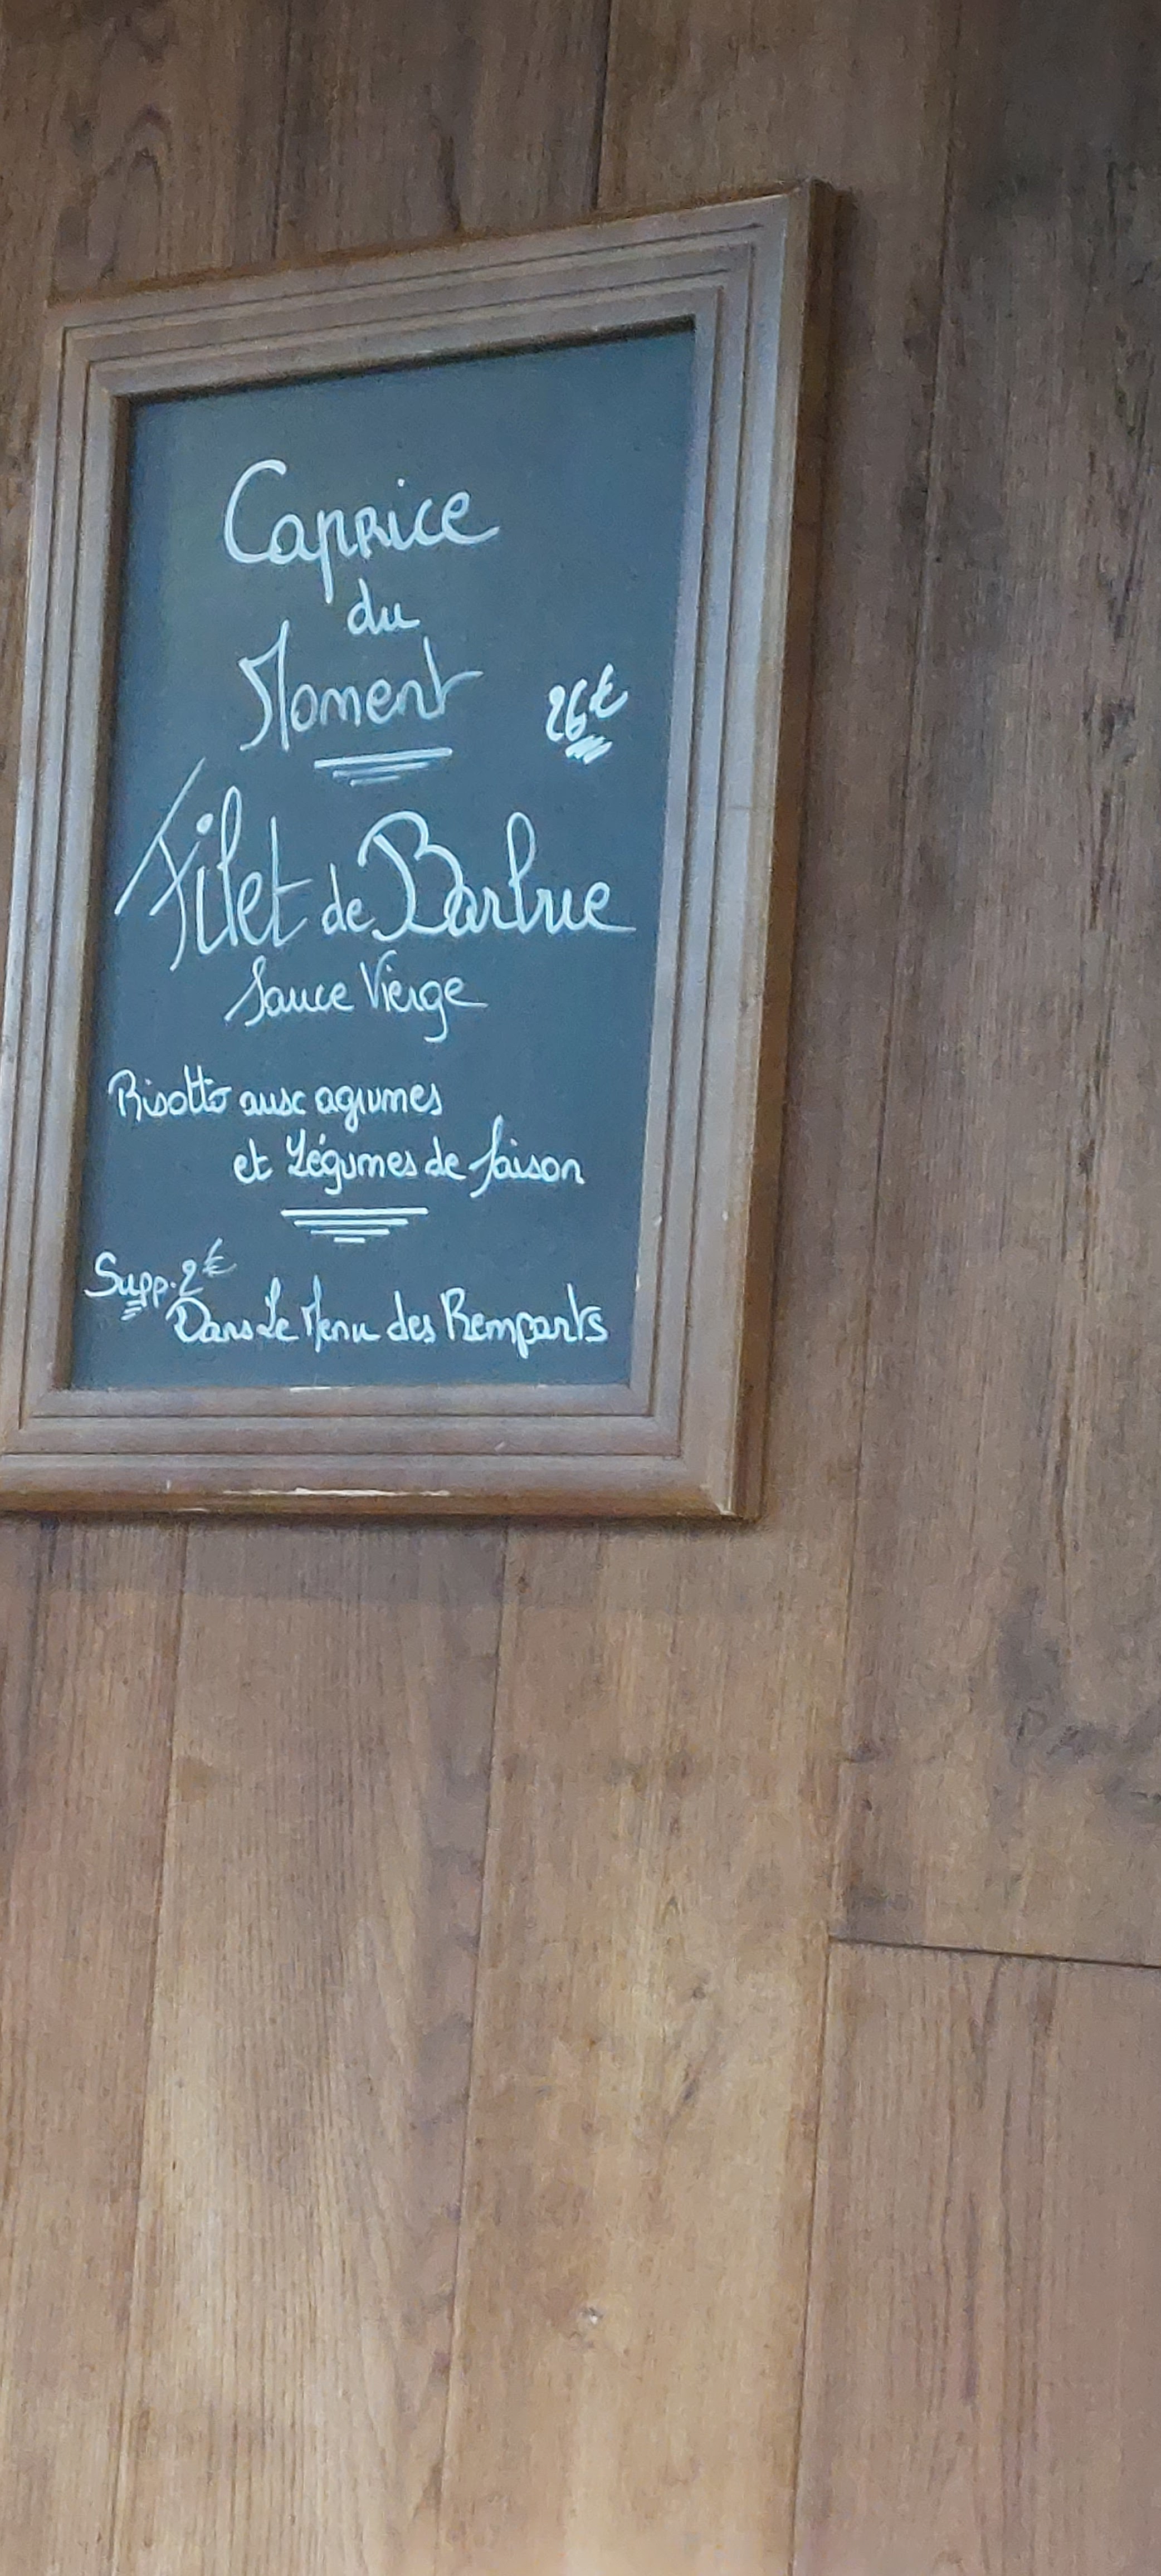 Caprice
du
Moment
26€
Filet de Barbue
Sauce Vierge
Risotto aux agrumes
et Légumes de Saison
Supp. 2€
Dans Le Menu des Remparts